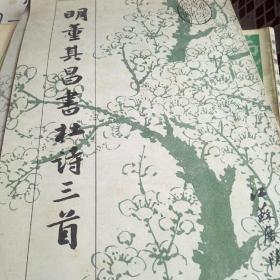 明董其昌書杜诗三首